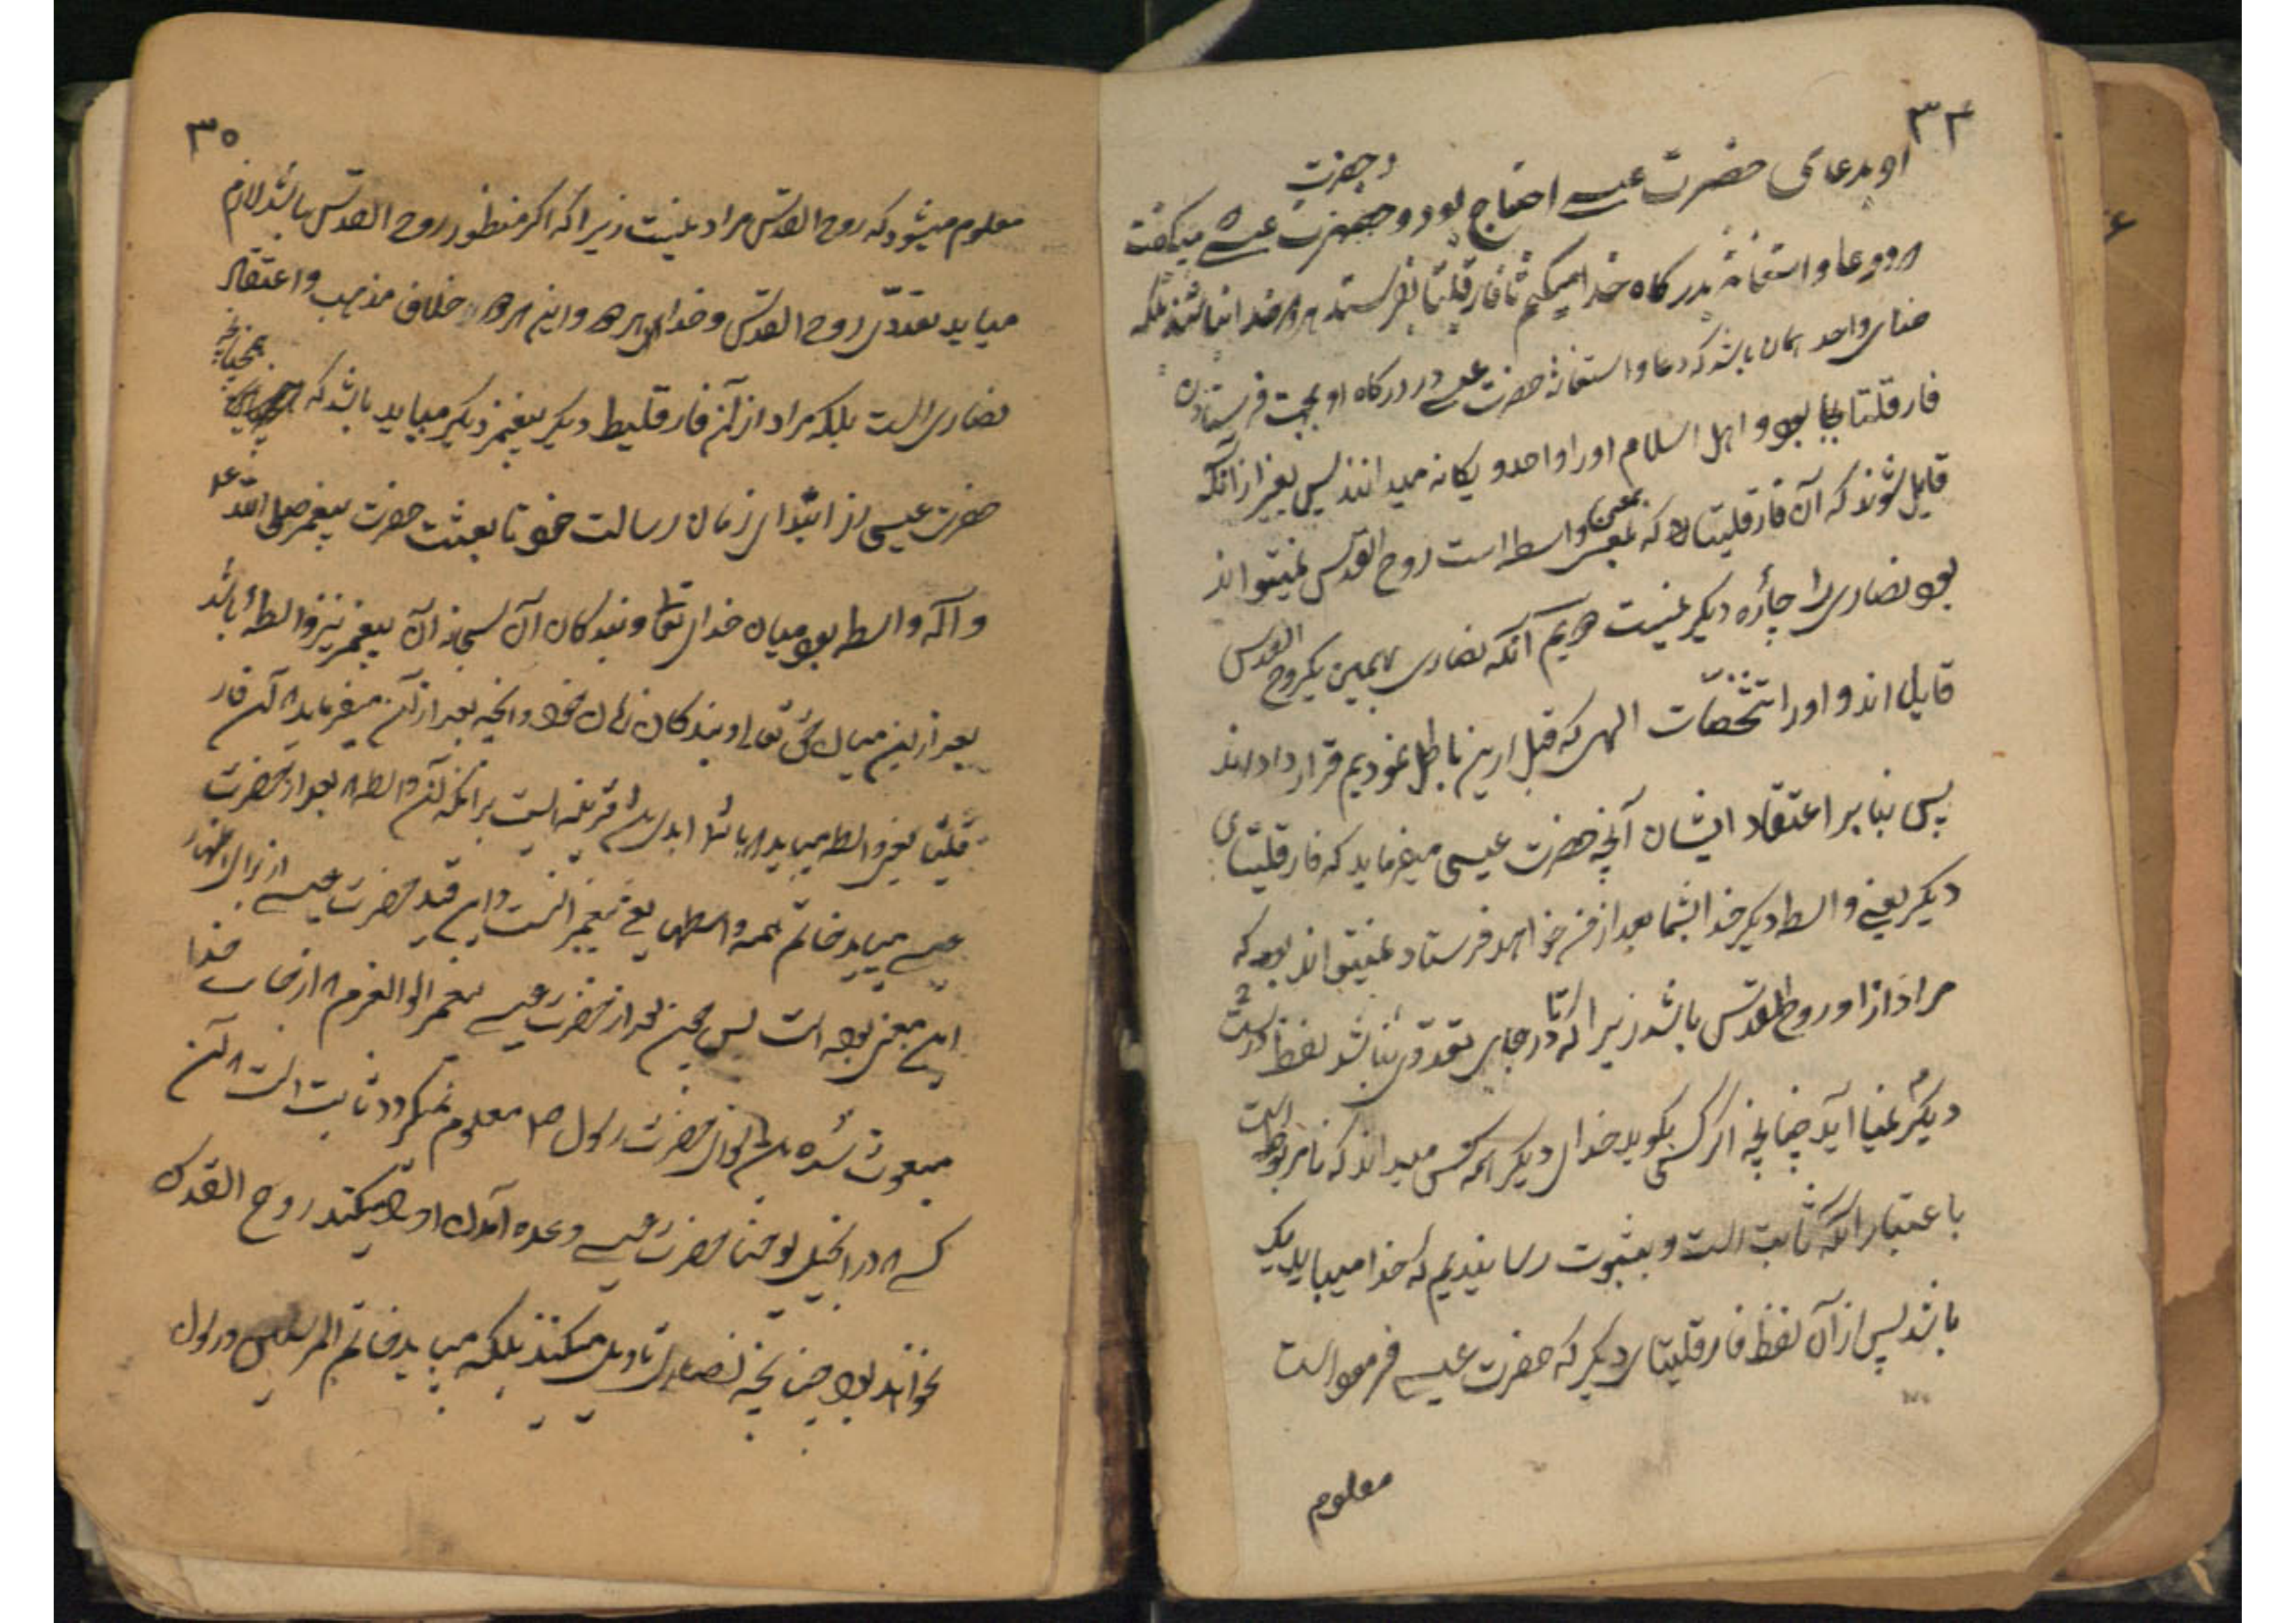 ۳۴
او بدعای حضرت عیسی احتیاج بود و حضرت عیسی میگفت
و حضرت
دعا و استغاثه بدرگاه خدا میکنم تا فارقلیتا بفرستد خدا نباشند بلکه
خدای واحد همان باشد که دعا و استغاثه حضرت عیسی در درگاه او بجهت فرستادن
فارقلیتا بود و اهل اسلام او را واحد و یگانه میدانند پس بغیر از آنکه
قایل شوند که آن فارقلیتا که بمعنی واسطه است روح القدس نمیتواند
بود نصاری را چاره دیگر نیست دویم آنکه نصاری بهمین یکروح القدس
قایل اند و او را تشخصات الهی که قبل ازین باطل نمودیم قرار داده اند
پس بنا بر اعتقاد ایشان آنچه حضرت عیسی میفرماید که فارقلیتای
دیگر یعنی واسطه دیگر خدا بشما بعد از من خواهد فرستاد نمیتواند بود که
مراد از او روح القدس باشد زیرا که تا در جای تعددی نباشد لفظ
دیگر نمیاید چنانچه اگر کسی بگوید خدای دیگر همه کس میداند که نامربوط است
باعتبار آنکه ثابت است و بثبوت رسانیدیم که خدا میباید یک
باشد پس از آن لفظ فارقلیتای دیگر که حضرت عیسی فرموده است
معلوم
۳۵
معلوم میشود که روح القدس مراد نیست زیرا که اگر منظور روح القدس باشد لازم
میاید تعدد روح القدس و خدای و این خلاف مذهب و اعتقاد
نصاری است بلکه مراد از آن فارقلیط دیگر پیغمبر دیگر میباید باشد که همچنانچه
حضرت عیسی از ابتدای زمان رسالت خود تا بعثت حضرت پیغمبر صلی الله
واسطه بود میان خدای تعالی و بندگان آن آن پیغمبر نیز واسطه باشد
بعد ازین میان حق تعالی و بندگان زمان خود و آنچه بعد از آن میفرماید آن فار
قلیتا یعنی واسطه میباید ابدی باشد قرینه است بر آنکه آن واسطه بعد از حضرت
عیسی میباید خاتم همه واسطها یعنی پیغمبر و این قید حضرت عیسی از برای اظهار
این معنی بوده است پس چون بعد از حضرت عیسی پیغمبر اولوالعزم از جانب خدا
مبعوث شده سوای حضرت رسول معلوم نمیگردد ثابت است آن
کسی در انجیل یوحنا حضرت عیسی وعده آمدن او میکند روح القدس
نخواهد بود چنانچه نصاری تاویل میکنند بلکه میباید خاتم المرسلین و رسول